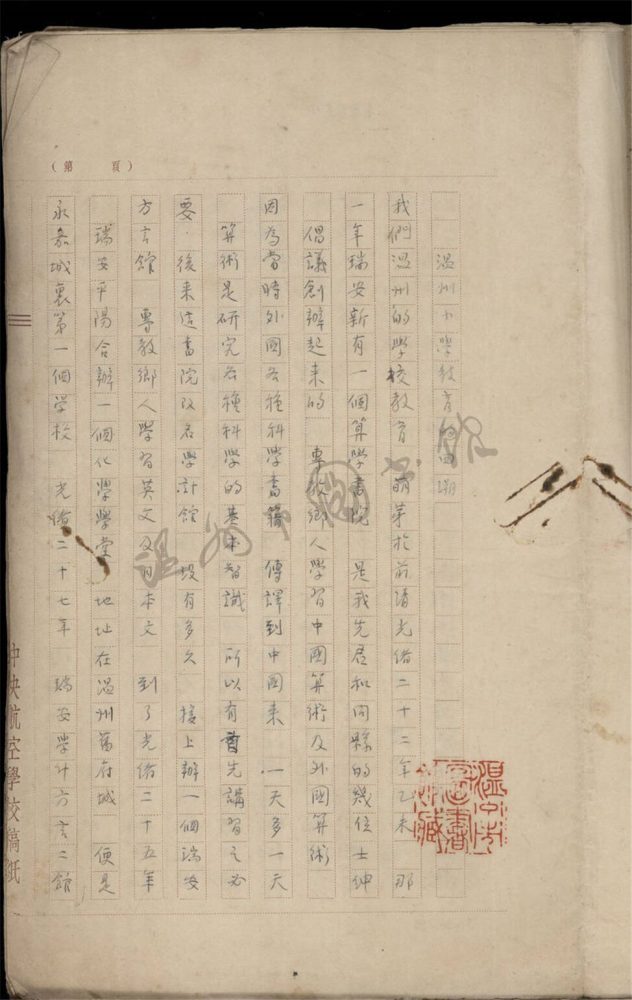 （第　頁）
温州小學教育的回溯
我們温州的學校教育萌芽於前清光緒二十二年乙未 那
一年瑞安新有一個算學書院 是我先君和同縣的幾位士紳
倡議創辦起来的 專教鄉人學習中國算術及外國算術
因為當時外國各種科學書籍 傳譯到中國来 一天多一天
算術是研究各種科學的基本智識 所以有首先講習之必
要．後来這書院改名學計館 没有多久 接上辦一個瑞安
方言館 專教鄉人學習英文及日本文 到了光緒二十五年
瑞安平陽合辦一個化學學堂 地址在温州舊府城 便是
永嘉城裏第一個學校 光緒二十七年 瑞安學計方言二館
中央航空學校稿紙
温州市圖書館藏
温州市圖書館